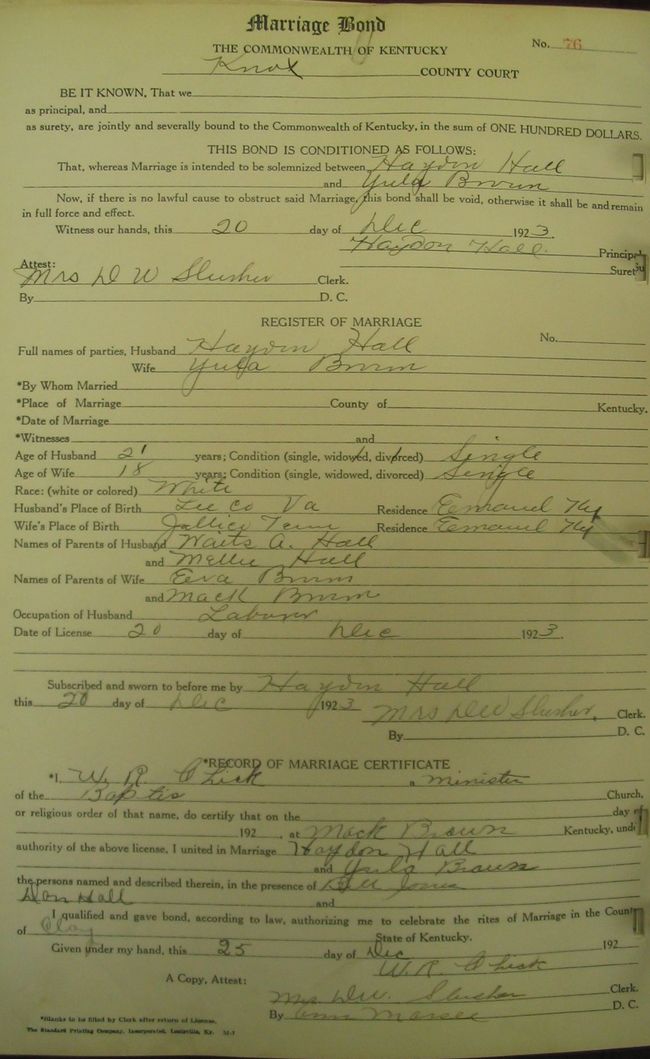 Marriage Bond
THE COMMONWEALTH OF KENTUCKY
No. 76
Knox COUNTY COURT
BE IT KNOWN, That we
as principal, and
as surety, are jointly and severally bound to the Commonwealth of Kentucky, in the sum of ONE HUNDRED DOLLARS.
THIS BOND IS CONDITIONED AS FOLLOWS:
That, whereas Marriage is intended to be solemnized between Haydon Hall
and Yula Brown
Now, if there is no lawful cause to obstruct said Marriage, this bond shall be void, otherwise it shall be and remain
in full force and effect.
Witness our hands, this 20 day of Dec 1923
Haydon Hall. Principal
Attest: Suret
Mrs D W Slusher Clerk.
By D. C.
REGISTER OF MARRIAGE
No.
Full names of parties, Husband Haydon Hall
Wife Yula Brown
*By Whom Married
*Place of Marriage County of Kentucky.
*Date of Marriage
*Witnesses and
Age of Husband 21 years; Condition (single, widowed, divorced) Single
Age of Wife 18 years; Condition (single, widowed, divorced) Single
Race: (white or colored) White
Husband's Place of Birth Lee Co Va Residence Emanuel Ky
Wife's Place of Birth Jellico Tenn Residence Emanuel Ky
Names of Parents of Husband Waits A. Hall
and Mellie Hall
Names of Parents of Wife Eva Brown
and Mack Brown
Occupation of Husband Laborer
Date of License 20 day of Dec 1923.
Subscribed and sworn to before me by Haydon Hall
this 20 day of Dec 1923 Mrs D W Slusher, Clerk.
By D. C.
*RECORD OF MARRIAGE CERTIFICATE
*I, W. R. Chick, a minister
of the Baptis Church,
or religious order of that name, do certify that on the day of
192 , at Mack Brown Kentucky, unde
authority of the above license, I united in Marriage Haydon Hall
and Yula Brown
the persons named and described therein, in the presence of Bill Jones
Dan Hall and
I qualified and gave bond, according to law, authorizing me to celebrate the rites of Marriage in the County
of Clay State of Kentucky.
Given under my hand, this 25 day of Dec 192
W. R. Chick
A Copy, Attest:
Mrs D W. Slusher Clerk.
By D. C.
*Blanks to be filled by Clerk after return of License.
The Standard Printing Company, Incorporated, Louisville, Ky.